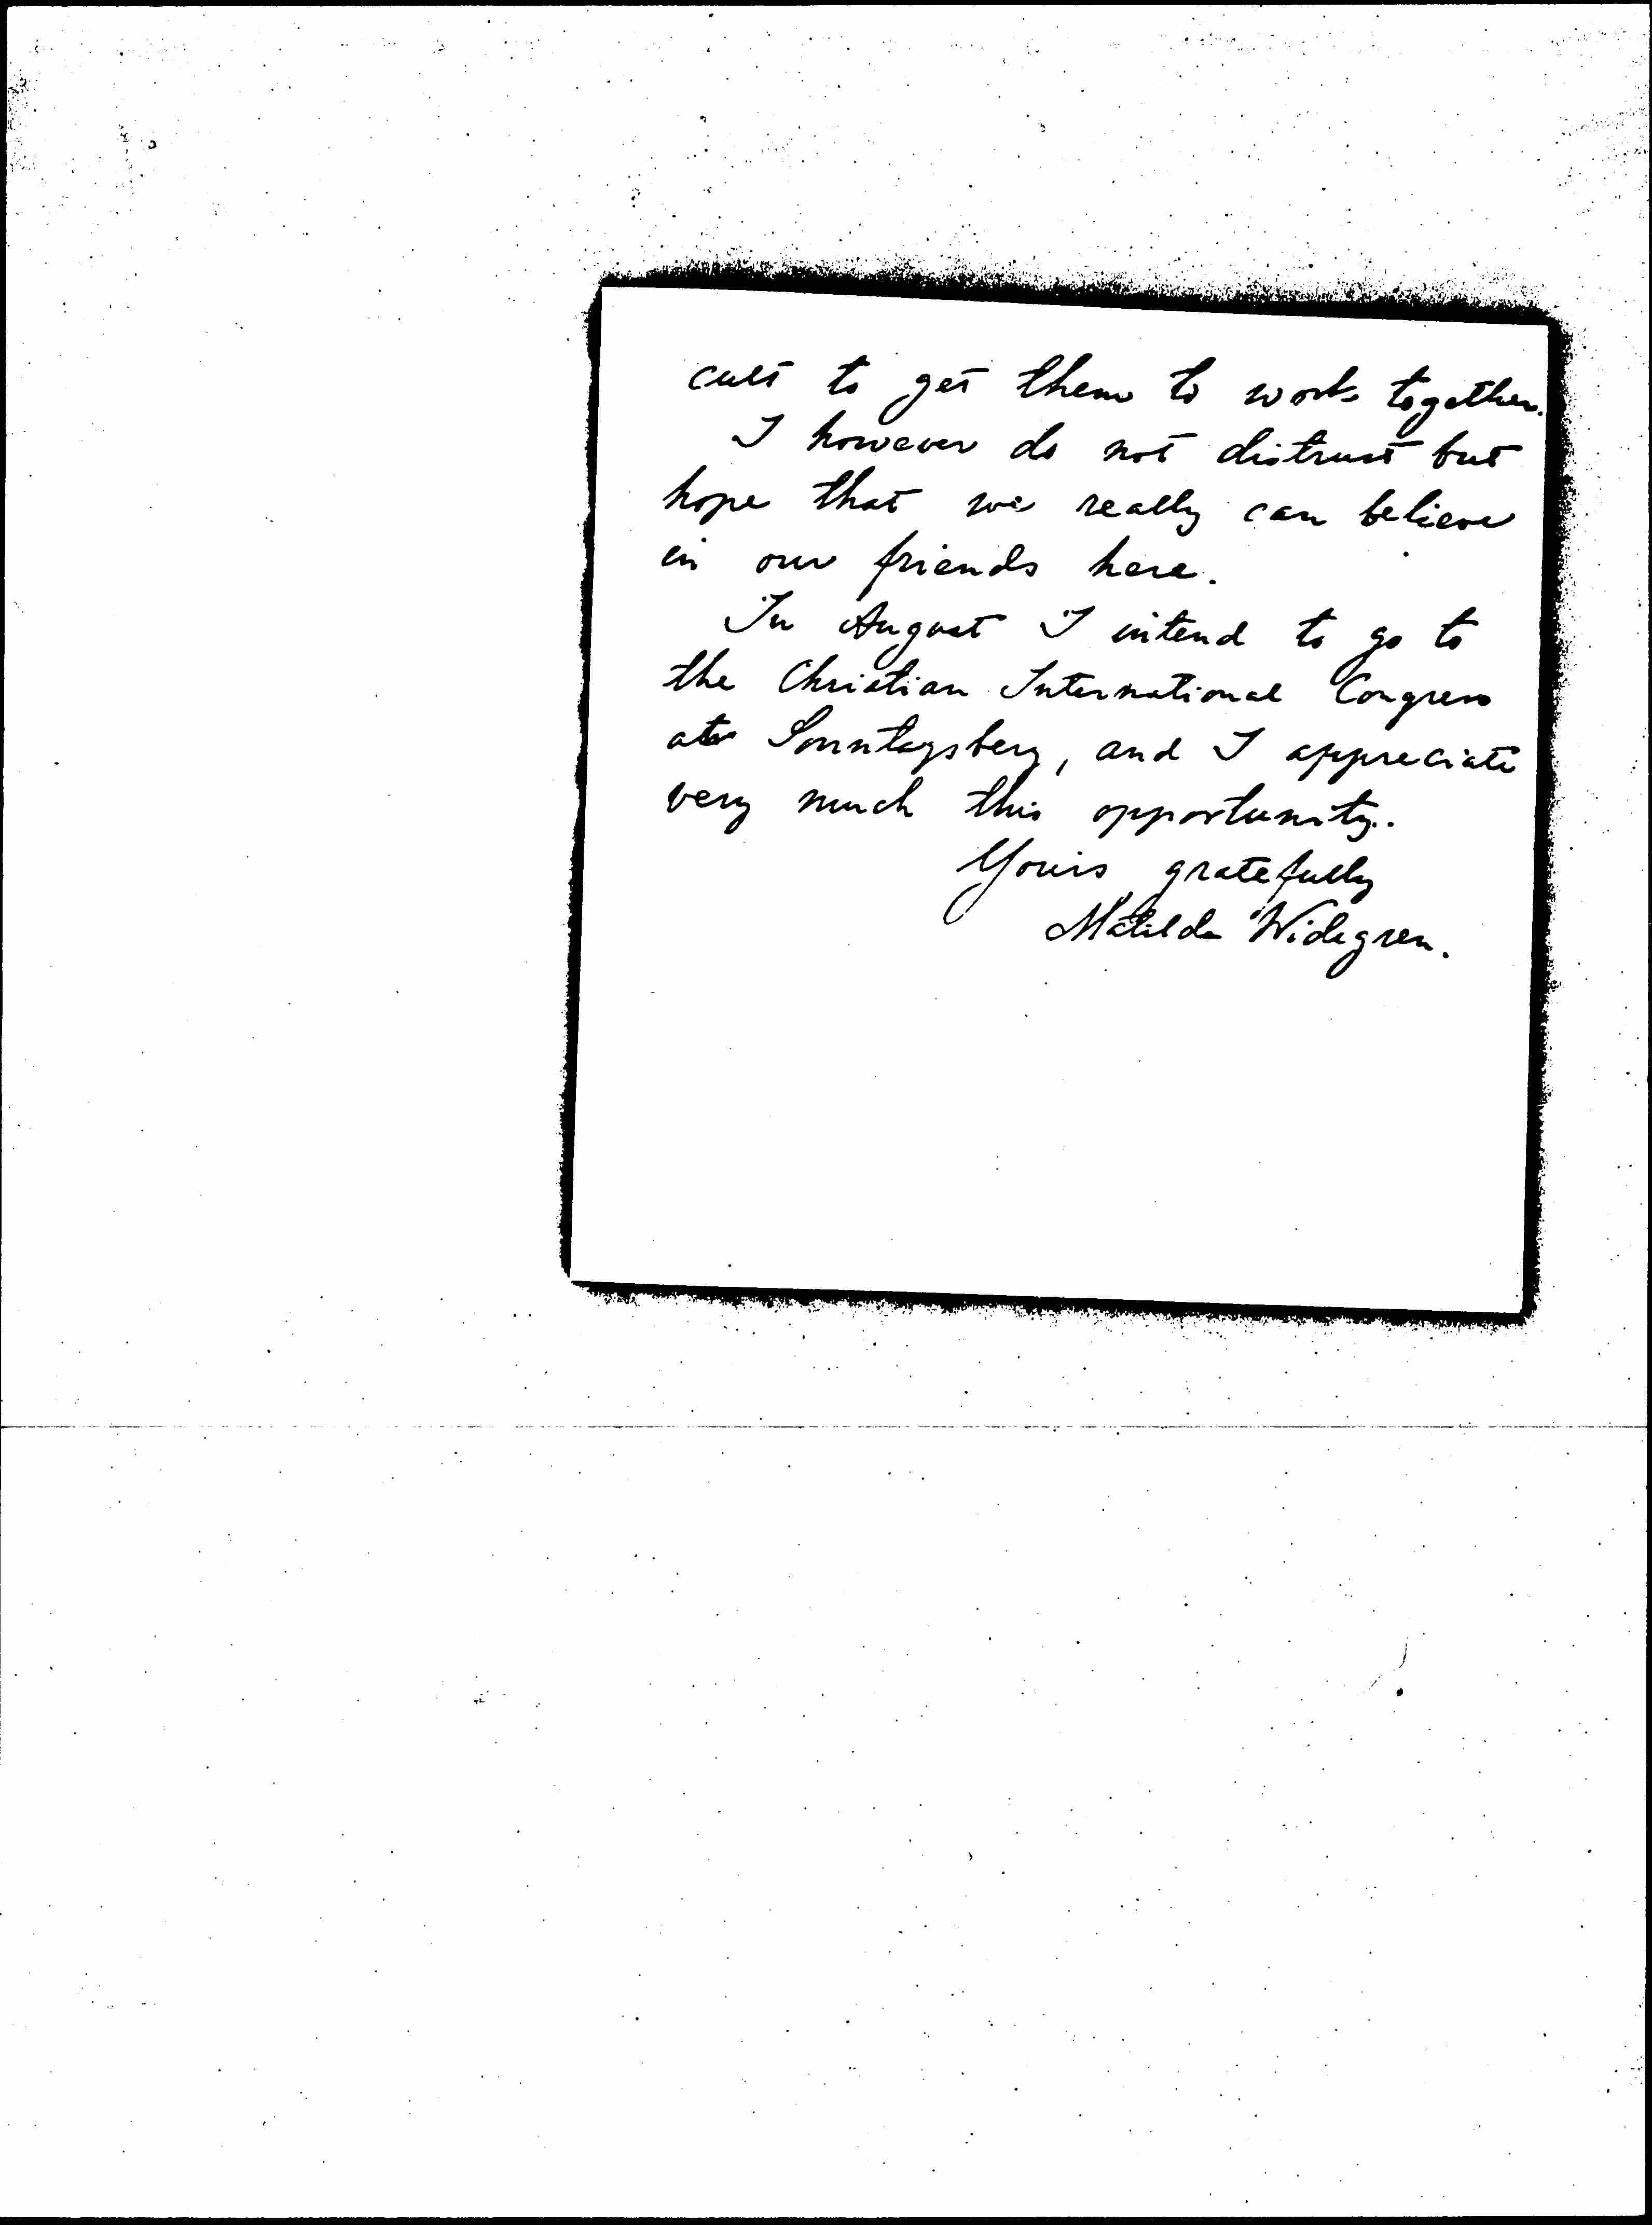 cult to get them to work together.
I however do not distrust but
hope that we really can believe
in our friends here.
In August I intend to go to
the Christian International Congress
at Sonntagsberg, and I appreciate
very much this opportunity.
Yours gratefully
Matilda Widegren.